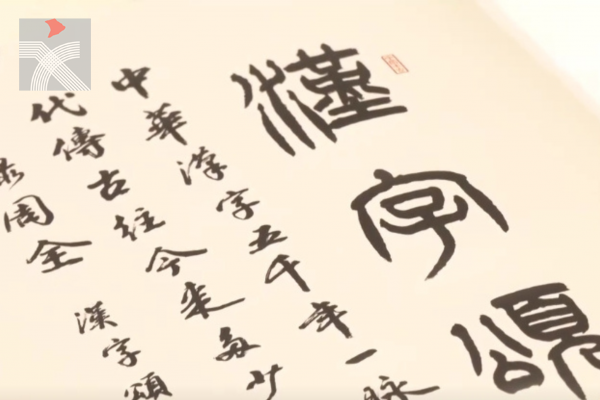 漢字頌
中華漢字五千年一脉
代傳古往今來多少
周全 漢字頌